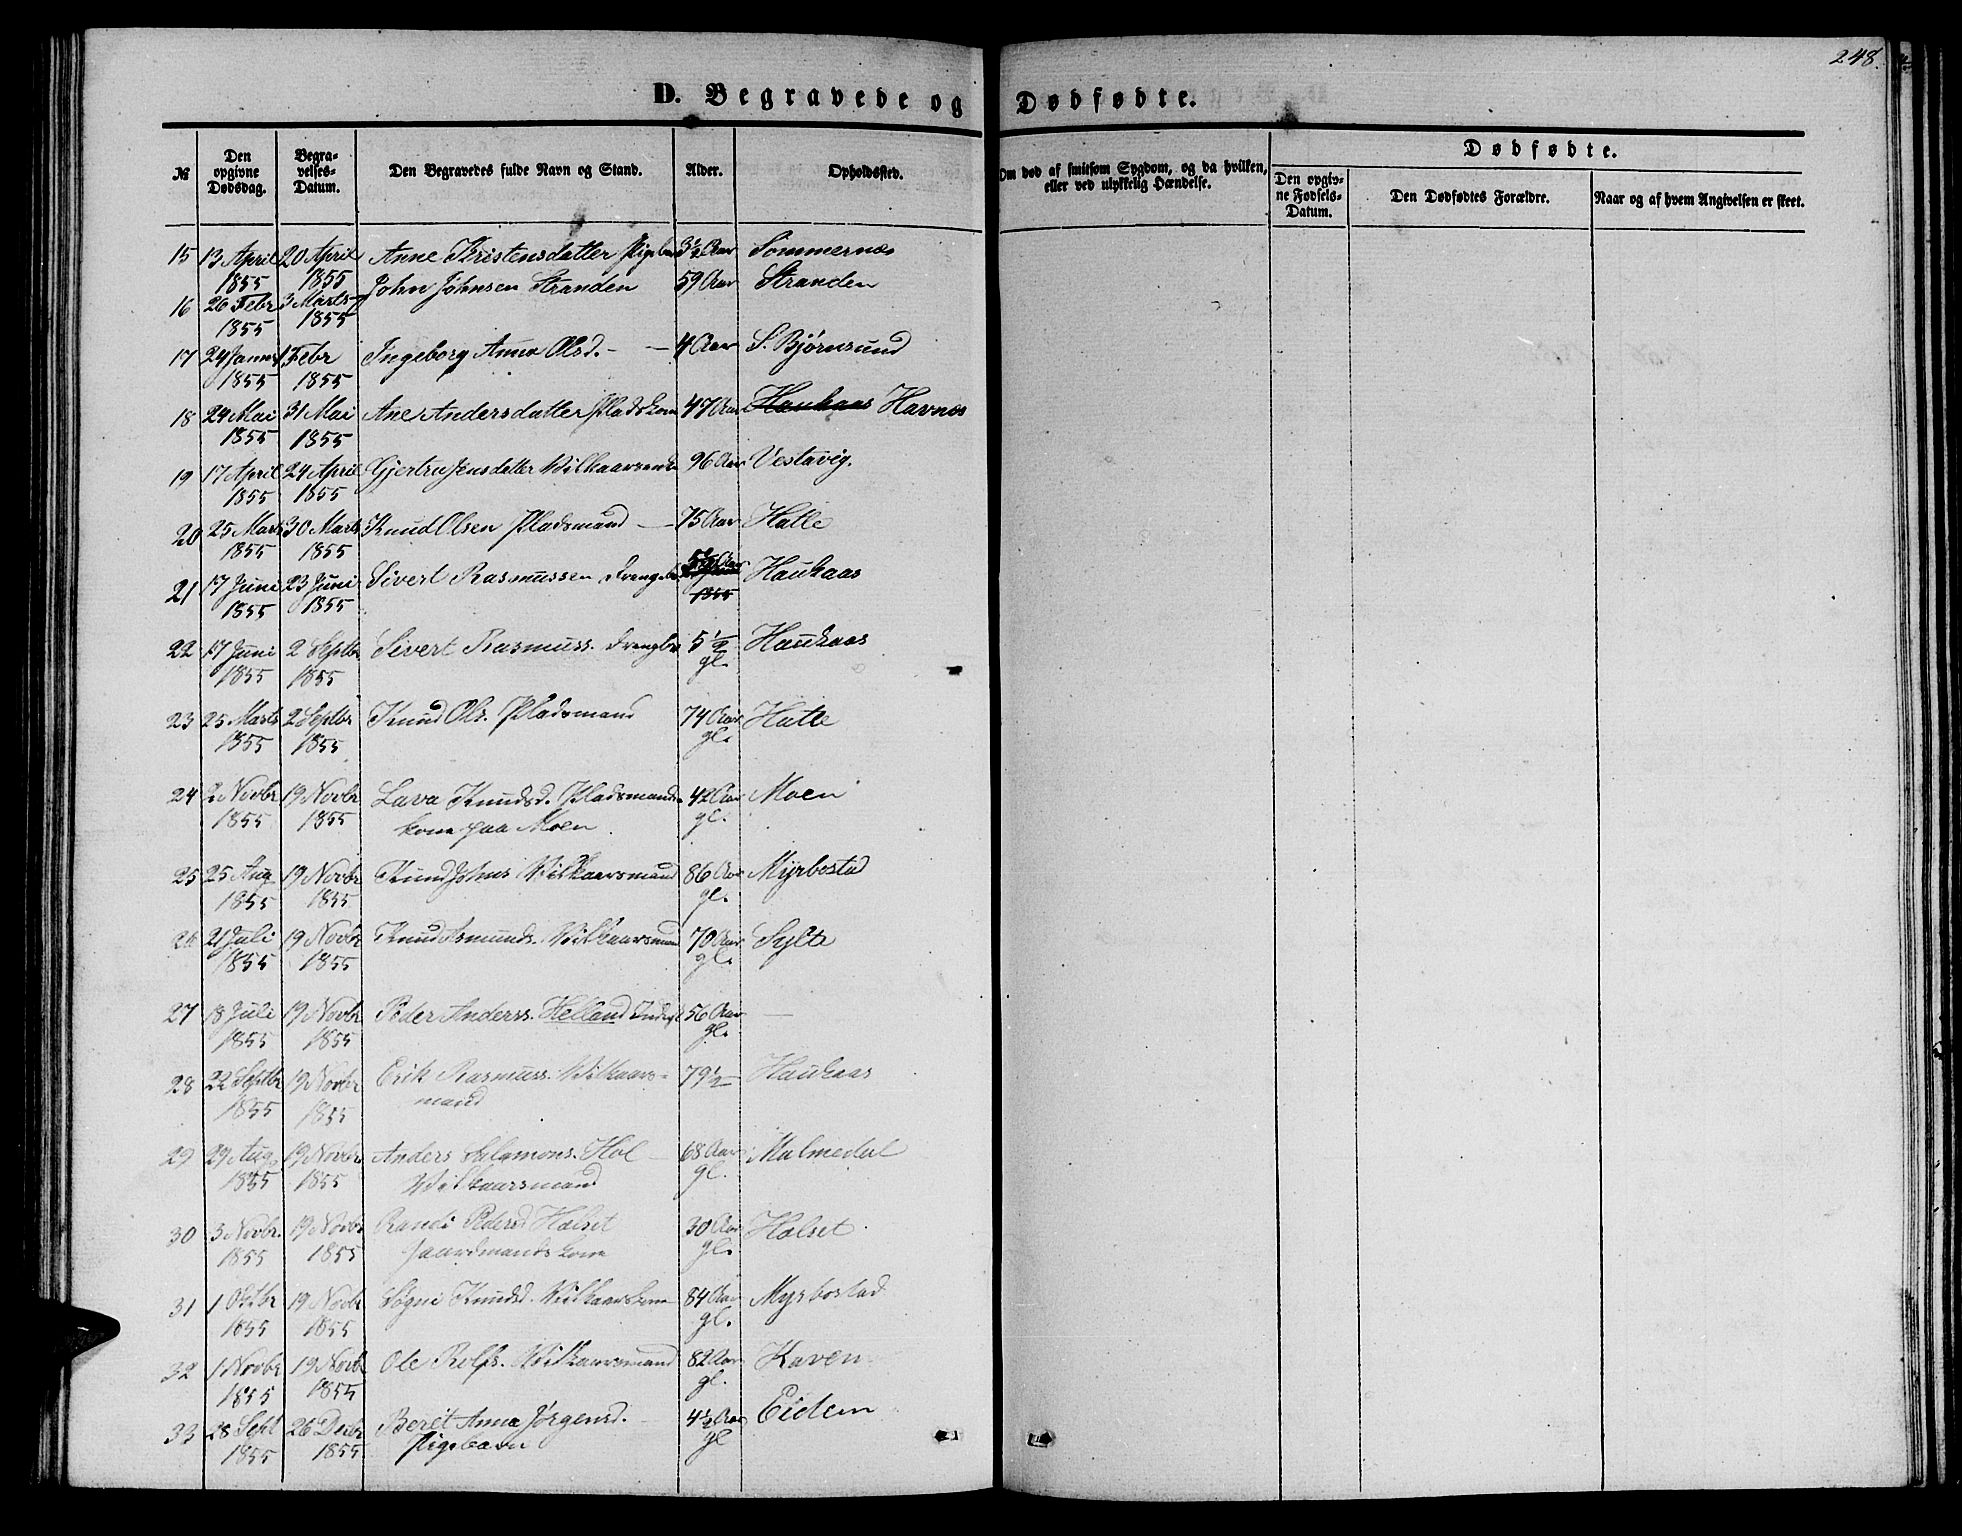 248.
D. Begravede og Dødfødte.
№ | Den opgivne Dødsdag. | Begravelses-Datum. | Den Begravedes fulde Navn og Stand. | Alder. | Opholdssted. | Om død af smitsom Sygdom, og da hvilken, eller ved ulykkelig Hændelse. | Dødfødte. | Den opgivne Fødsels-Datum. | Den Dødfødtes Forældre. | Naar og af hvem Angivelsen er skeet.
15 | 13 April 1855 | 20 April 1855 | Anne Kristensdatter Pigeba | 3½ Aar | Sommernæs
16 | 26 Febr 1855 | 3 Marts 1855 | John Johnsen Stranden | 59 Aar | Stranden
17 | 24 Janr 1855 | 1 Febr 1855 | Ingeborg Anna Olsd. | 4 Aar | S. Bjørnsund
18 | 24 Mai 1855 | 31 Mai 1855 | Ane Andersdatter Pladskone | 47 Aar | Haukaas Havnes
19 | 17 April 1855 | 24 April 1855 | Gjertru Jensdatter | 96 Aar | Vestavig.
20 | 25 Marts 1855 | 30 Marts 1855 | Knud Olsen Pladsmand | 75 Aar | Hatle
21 | 17 Juni 1855 | 23 Juni 1855 | Sivert Rasmussen Drengeb | Aar 1855 | Haukaas
22 | 17 Juni 1855 | 2 Septbr 1855 | Sivert Rasmuss. Drengb | 5½ gl. | Haukaas
23 | 25 Marts 1855 | 2 Septbr 1855 | Knud Ols. Pladsmand | 74 Aar gl. | Hatle
24 | 2 Novbr 1855 | 19 Novbr 1855 | Lava Knudsd. Pladsmands- kone paa Moen | 42 Aar gl. | Moen
25 | 25 Aug 1855 | 19 Novbr 1855 | Knud Johns Vilkaarsmand | 86 Aar gl. | Myrbostad
26 | 21 Juli 1855 | 19 Novbr 1855 | Knud Asmunds. Vilkaarsmand | 70 Aar gl. | Sylte
27 | 18 Juli 1855 | 19 Novbr 1855 | Peder Anderss. Helland | 56 Aar gl. | —
28 | 22 Septbr 1855 | 19 Novbr 1855 | Erik Rasmuss. Vilkaars- mand | 79½ | Haukaas
29 | 29 Aug 1855 | 19 Novbr 1855 | Anders Salamons. Hol Vilkaarsmand | 68 Aar gl. | Malmedal
30 | 3 Novbr. 1855 | 19 Novbr 1855 | Randi Pedersd Holset Gaardmands kone | 30 Aar gl. | Holset
31 | 1 Oktbr 1855 | 19 Novbr 1855 | Søgni Knudsd. Vilkaarskone | 84 Aar gl. | Myrbostad
32 | 1 Novbr 1855 | 19 Novbr 1855 | Ole Rolfs. Vilkaarsmand | 82 Aar gl. | Haven
33 | 28 Sept 1855 | 26 Decbr 1855 | Berët Anna Jörgensd. Pigebarn | 4½ Aar gl | Eidem